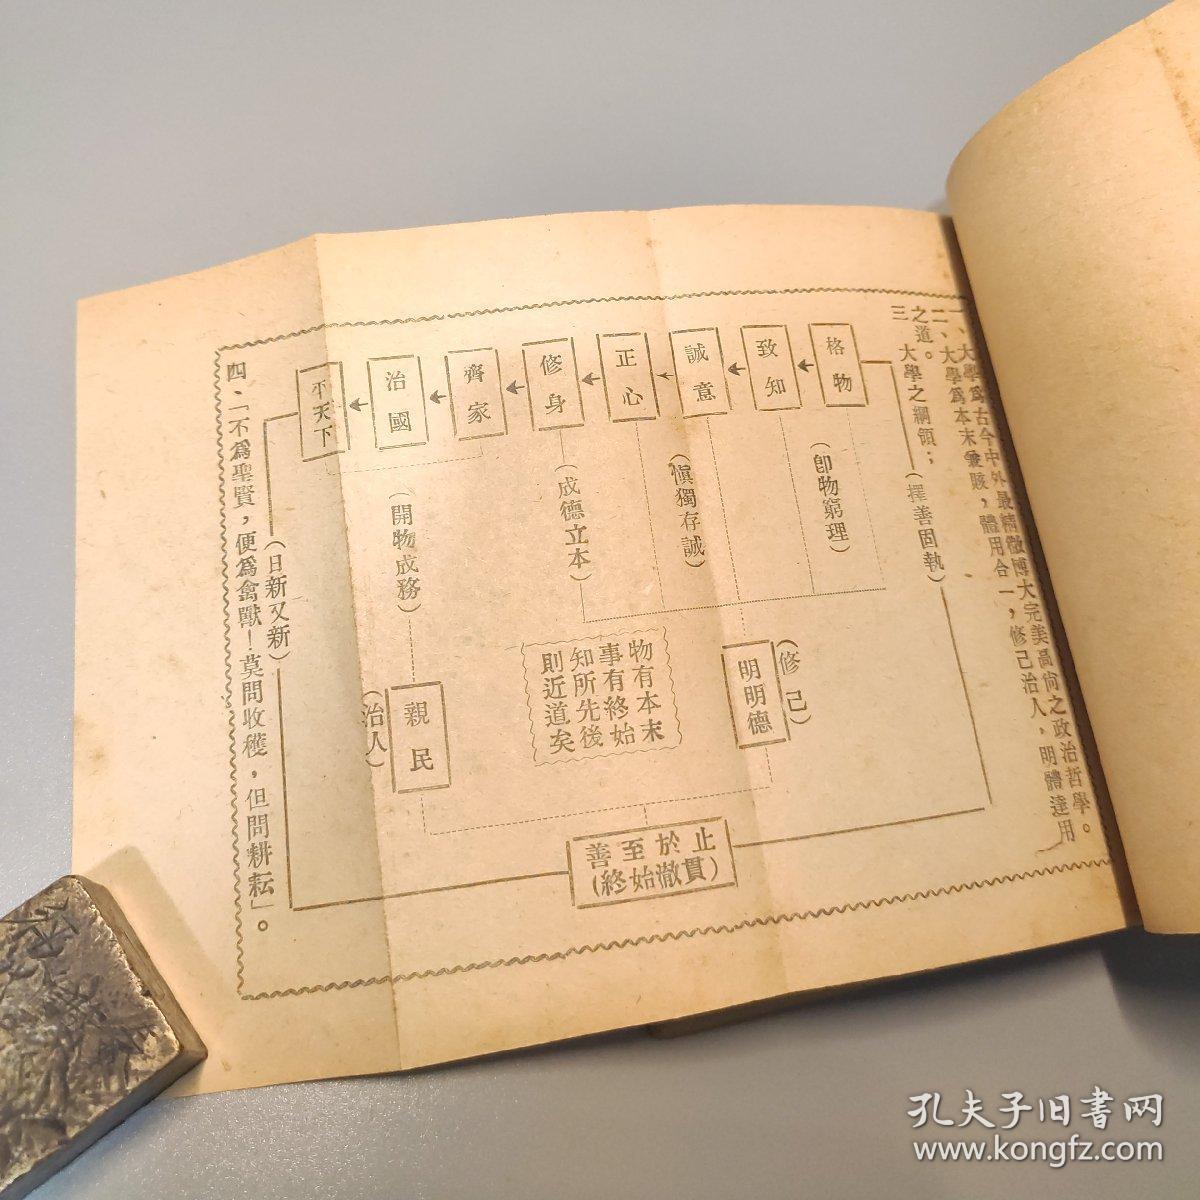 一、大學爲古今中外最精微博大完美高尙之政治哲學。
二、大學爲本末兼賅，體用合一，修己治人，明體達用
之道。
三、大學之綱領；
格物
致知
誠意
正心
修身
齊家
治國
平天下
(擇善固執)
(卽物窮理)
(愼獨存誠)
(成德立本)
(開物成務)
(日新又新)
(修己)
明明德
物有本末
事有終始
知所先後
則近道矣
親民
(治人)
止於至善
(貫澈始終)
四、「不爲聖賢，便爲禽獸！莫問收穫，但問耕耘」。
孔夫子旧书网
www.kongfz.com